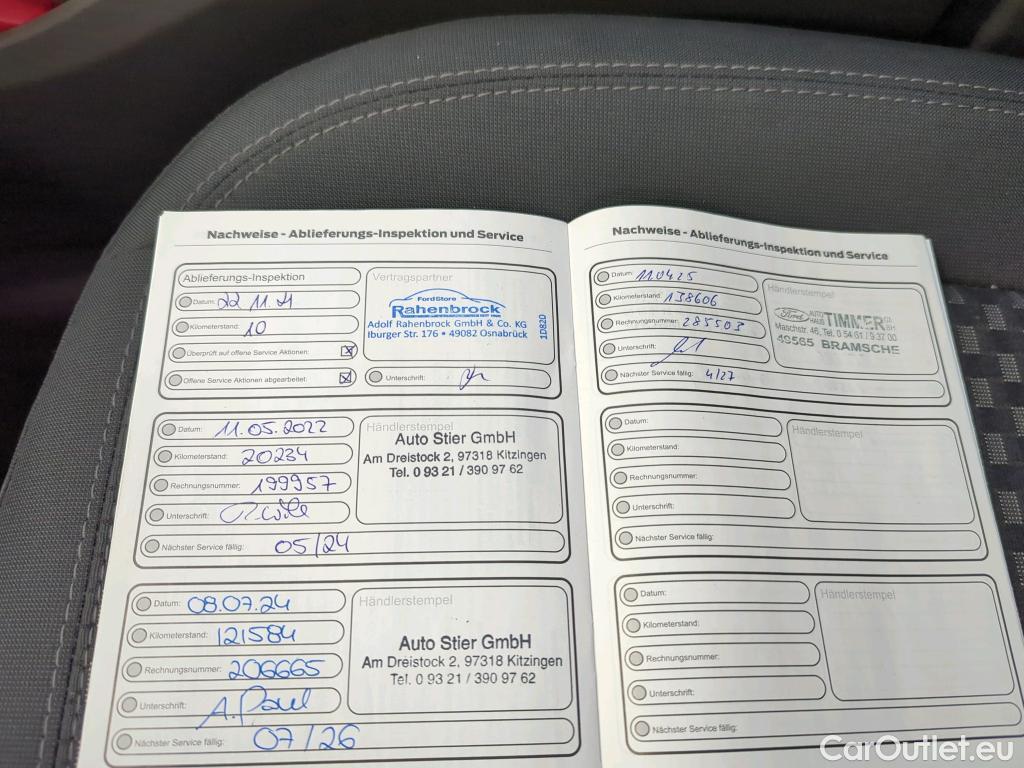 Nachweise - Ablieferungs-Inspektion und Service
Ablieferungs-Inspektion
Datum: 22 11 21
Kilometerstand: 10
Überprüft auf offene Service Aktionen: ☒
Offene Service Aktionen abgearbeitet: ☒
Vertragspartner
FordStore
Rahenbrock
Adolf Rahenbrock GmbH & Co. KG
Iburger Str. 176 • 49082 Osnabrück
1D820
Unterschrift:
Datum: 11.05.2022
Kilometerstand: 20234
Rechnungsnummer: 199957
Unterschrift:
Nächster Service fällig: 05/24
Händlerstempel
Auto Stier GmbH
Am Dreistock 2, 97318 Kitzingen
Tel. 0 93 21 / 390 97 62
Datum: 08.07.24
Kilometerstand: 121584
Rechnungsnummer: 206665
Unterschrift: A. Paul
Nächster Service fällig: 07/26
Händlerstempel
Auto Stier GmbH
Am Dreistock 2, 97318 Kitzingen
Tel. 0 93 21 / 390 97 62
Nachweise - Ablieferungs-Inspektion und Service
Datum: 110425
Kilometerstand: 138606
Rechnungsnummer: 285503
Unterschrift:
Nächster Service fällig: 4/27
Händlerstempel
Ford AUTO HAUS TIMMER GMBH
Maschstr. 46, Tel. 0 54 61 / 9 37 00
49565 BRAMSCHE
Datum:
Kilometerstand:
Rechnungsnummer:
Unterschrift:
Nächster Service fällig:
Händlerstempel
Datum:
Kilometerstand:
Rechnungsnummer:
Unterschrift:
Nächster Service fällig:
Händlerstempel
CarOutlet.eu